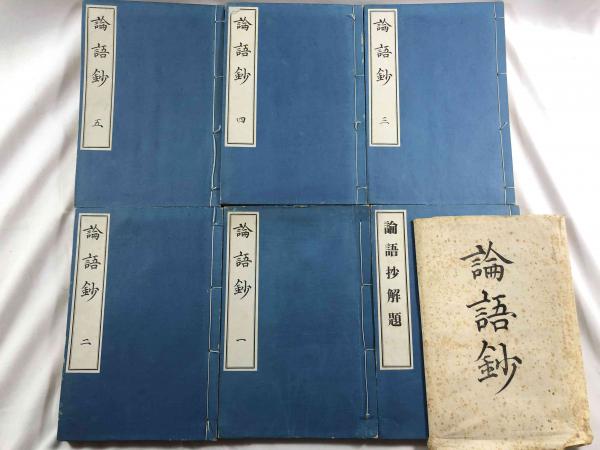 論語鈔 五
論語鈔 四
論語鈔 三
論語鈔 二
論語鈔 一
論語抄解題
論語鈔